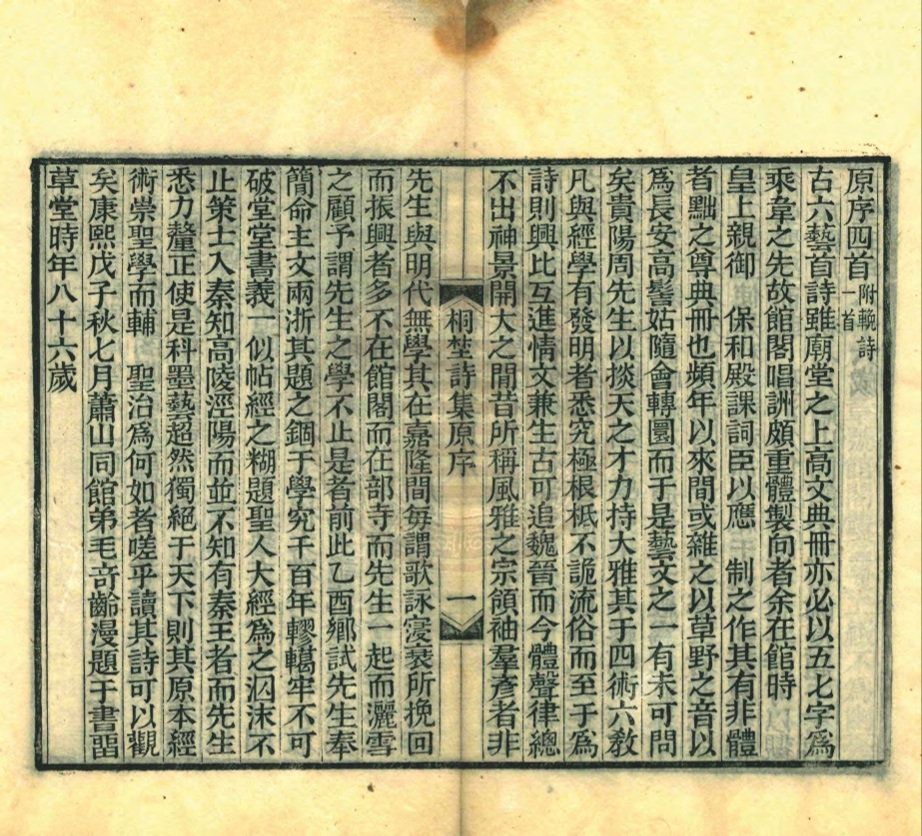 原序四首附輓詩一首
古六藝首詩雖廟堂之上高文典冊亦必以五七字爲
乘韋之先故館閣唱詶頗重體製向者余在館時
皇上親御 保和殿課詞臣以應 制之作其有非體
者黜之尊典冊也頻年以來間或雜之以草野之音以
爲長安高髻姑隨會轉圜而于是藝文之一有未可問
矣貴陽周先生以掞天之才力持大雅其于四術六教
凡與經學有發明者悉究極根柢不詭流俗而至于爲
詩則興比互進情文兼生古可追魏晉而今體聲律總
不出神景開大之間昔所稱風雅之宗領袖羣彥者非
桐埜詩集原序
一
先生與明代無學其在嘉隆間每謂歌詠寖衰所挽回
而振興者多不在館閣而在部寺而先生一起而灑雪
之顧予謂先生之學不止是者前此乙酉鄉試先生奉
簡命主文兩浙其題之錮于學究千百年轇轕牢不可
破堂堂書義一似帖經之糊題聖人大經爲之汩沫不
止策士入秦知高陵涇陽而並不知有秦王者而先生
悉力釐正使是科墨藝超然獨絕于天下則其原本經
術崇聖學而輔 聖治爲何如者嗟乎讀其詩可以觀
矣康熙戊子秋七月蕭山同館弟毛奇齡漫題于書畱
草堂時年八十六歲